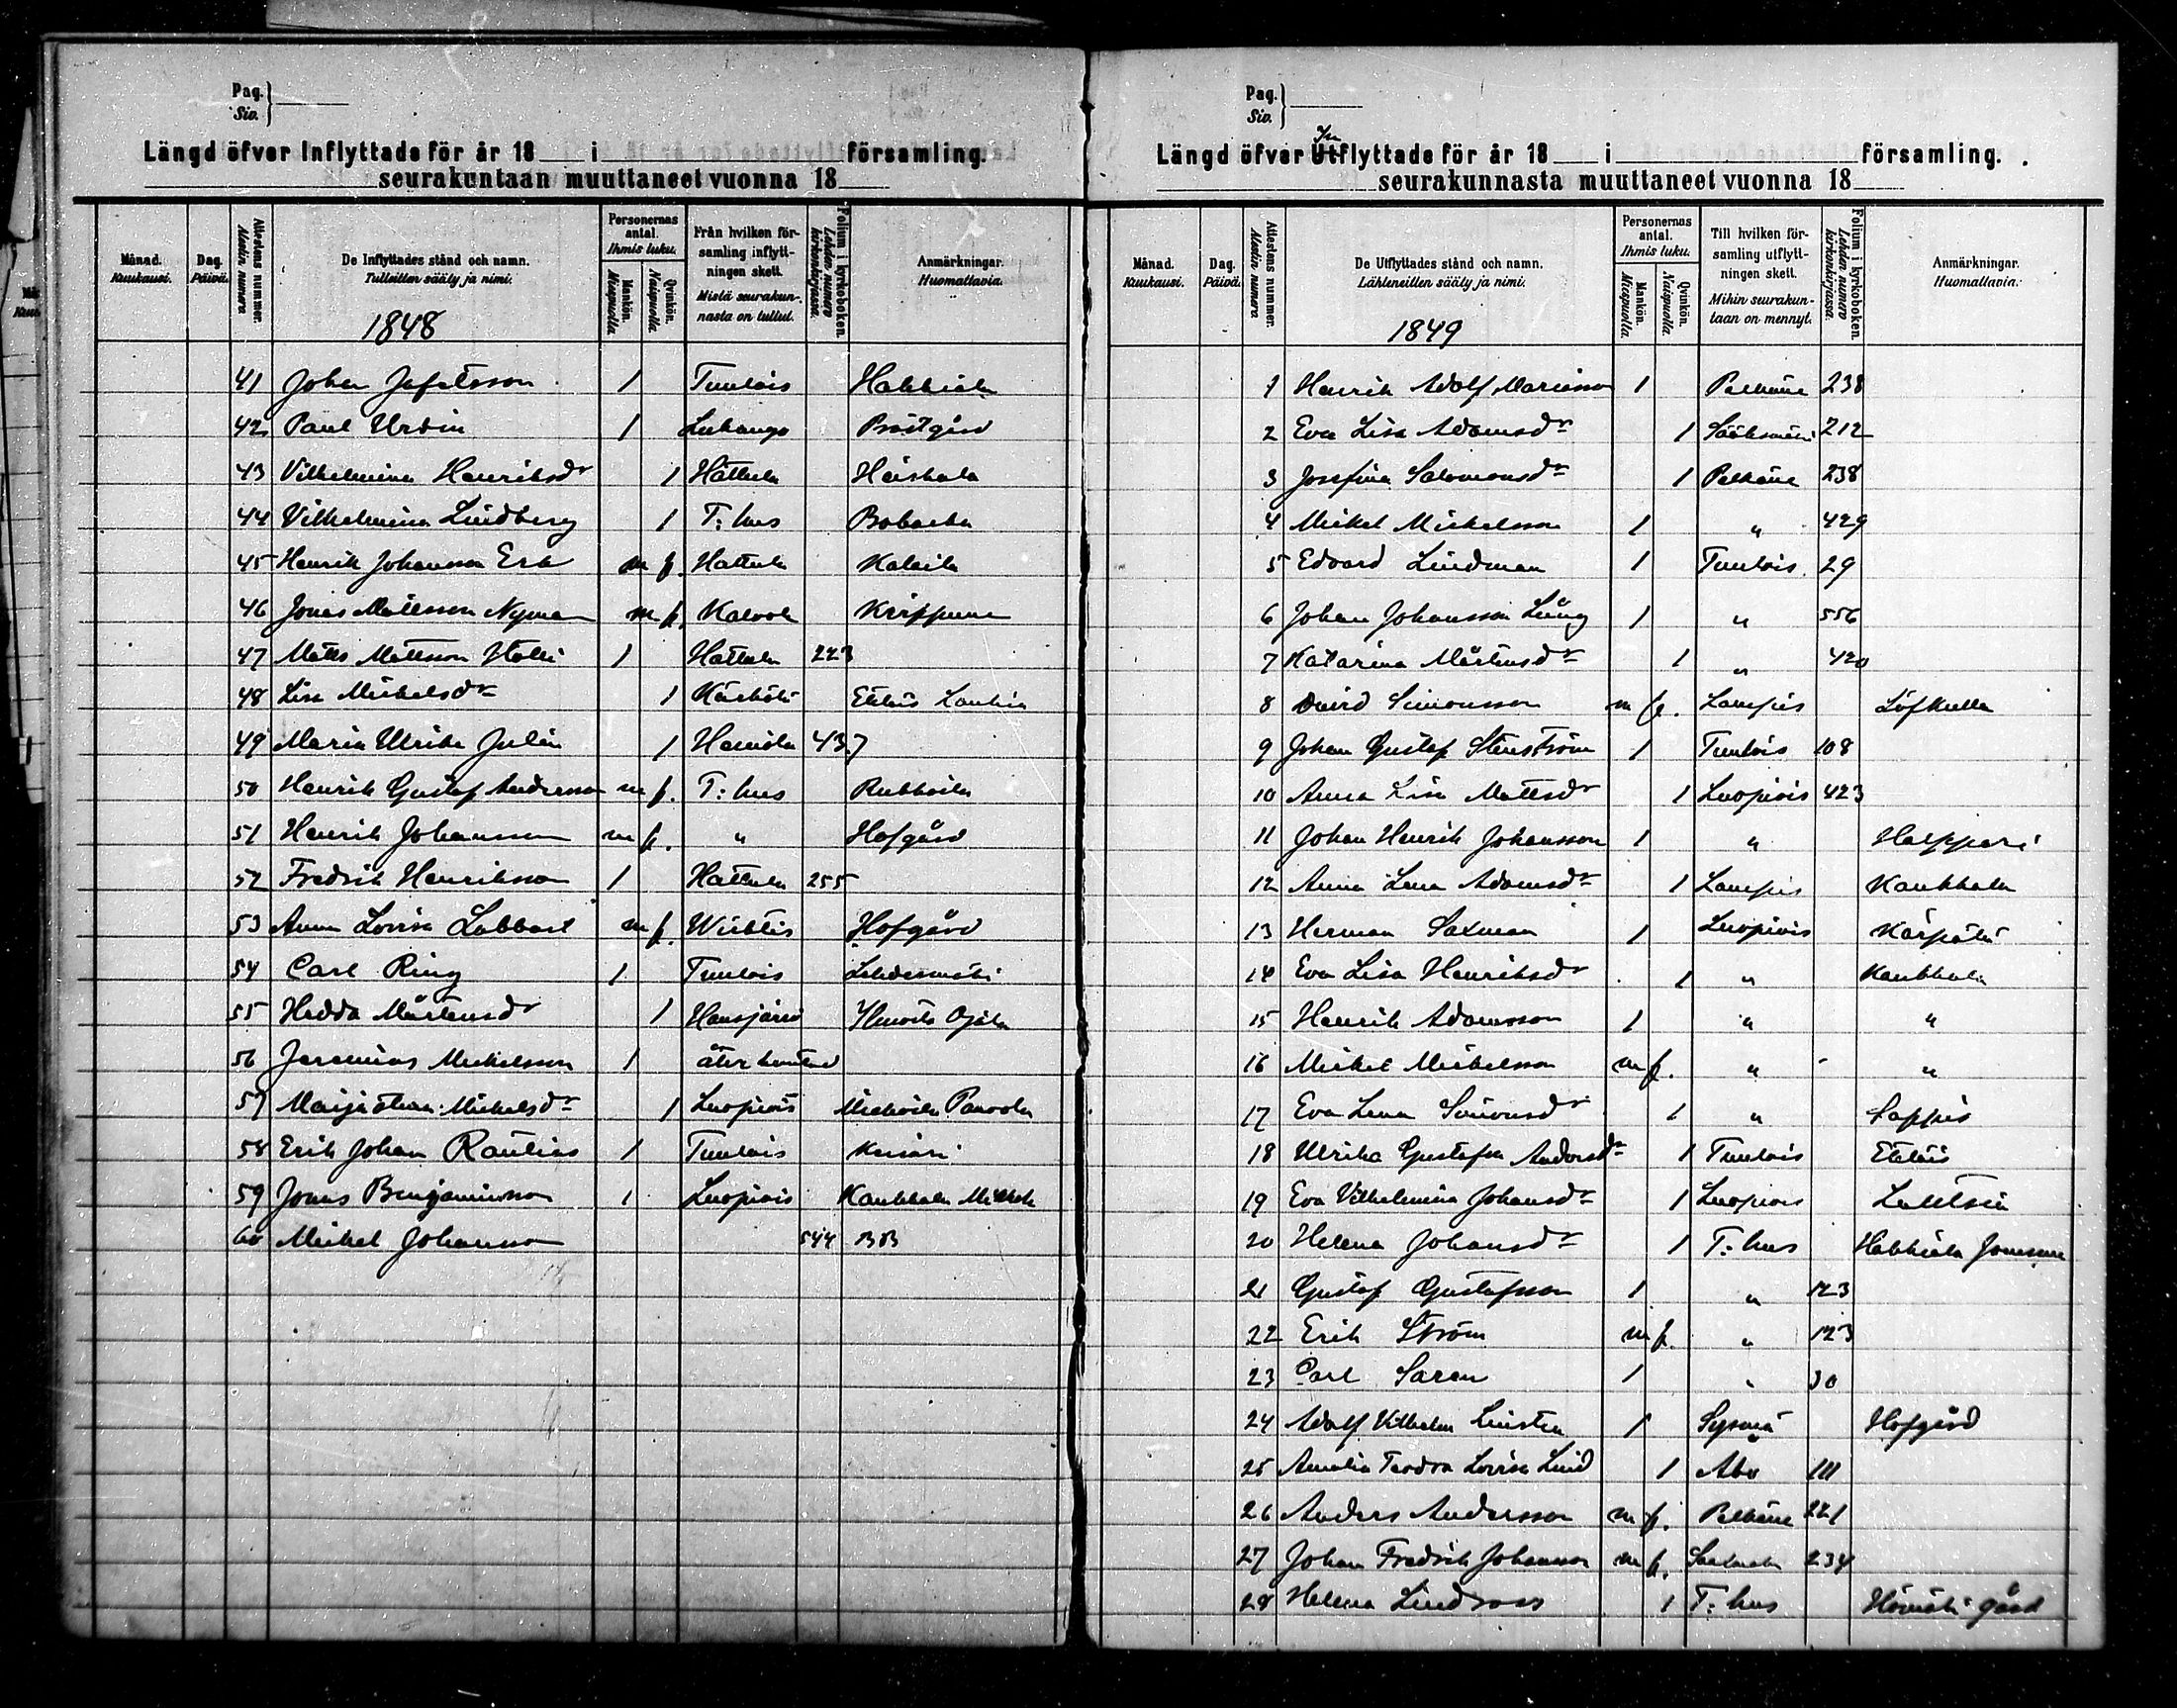 Pag.
Siv.
Längd öfver Inflyttade för år 18 i församling.
seurakuntaan muuttaneet vuonna 18
Månad. Kuukausi.
Dag. Päivä.
Attestens nummer. Atestin numero
De Inflyttades stånd och namn. Tulleitten sääty ja nimi.
1848
Personernas antal. Ihmis luku.
Mankön. Miespuolia
Qvinkön. Naispuolia.
Från hvilken församling inflyttningen skett. Mistä seurakunnasta on tullut.
Folium i kyrkoboken. Lehden numero kirkonkirjassa.
Anmärkningar. Huomattavia.
41 Johan Jafetsson 1 Tuulois Hakkiala
42 Paul Urdin 1 Luhango Prästgård
43 Vilhelmina Henriksdr 1 Hattula Heiskala
44 Vilhelmina Lindberg 1 T:hus
45 Henrik Johansson Erk m f. Hattula
46 Jonas Mattsson Nyman m f. Kalvola
47 Matts Mattsson 1 Hattula 223
48 Lisa Mickelsdr 1 Eteläis
49 Maria Ulrika Julin 1 437
50 Henrik Gustaf Andersson m f. T:hus
51 Henrik Johansson m f. " Hofgård
52 Fredrik Henriksson 1 Hattula 255
53 Anna Lovisa m f. Hofgård
54 Carl Ring 1 Tuulois
55 Hedda Mårtensdr 1 Hausjärvi
56 Jeremias Mickelsson 1
57 Mickelsdr 1 Luopiois
58 Erik Johan Rautius 1 Tuulois
59 Jonas Benjaminsson 1 Luopiois Kaukkala
60 Mickel Johansson 544 BB
Pag.
Siv.
In
Längd öfver Utflyttade för år 18 i församling.
seurakunnasta muuttaneet vuonna 18
Månad. Kuukausi.
Dag. Päivä.
Attestens nummer. Atestin numero
De Utflyttades stånd och namn. Lähteneitten sääty ja nimi.
1849
Personernas antal. Ihmis luku.
Mankön. Miespuolia
Qvinkön. Naispuolia.
Till hvilken församling utflyttningen skett. Mihin seurakuntaan on mennyt.
Folium i kyrkoboken. Lehden numero kirkonkirjassa.
Anmärkningar. Huomattavia.
1 Henrik Adolf 1 Pelkäne 238
2 Eva Lisa Adamsdr 1 Sääksmäki 212
3 Josefina Salomonsdr 1 Pelkäne 238
4 Mickel Mickelsson 1 " 429
5 Edvard Lindman 1 Tuulois 29
6 Johan Johansson Ljung 1 " 556
7 Katarina Mårtensdr 1 " 420
8 David Simonsson m f. Lampis Löfkulla
9 Johan Gustaf Stenström 1 Tuulois 108
10 Anna Lisa Mattsdr 1 Luopiois 423
11 Johan Henrik Johansson 1 " Halppari
12 Anna Lena Adamsdr 1 Lampis Kaukkala
13 Herman Salman 1 Luopiois
14 Eva Lisa Henriksdr 1 " Kaukkala
15 Henrik Adamsson 1 " "
16 Mickel Mickelsson m f. " "
17 Eva Lena Simonsdr 1 " Sappis
18 Ulrika Gustafva Andersdr 1 Tuulois Eteläis
19 Eva Vilhelmina Johansdr 1 Luopiois
20 Helena Johansdr 1 T:hus Hakkiala
21 Gustaf Gustafsson 1 " 123
22 Erik Ström m f. " 123
23 Carl Saren 1 " 30
24 Adolf Vilhelm 1 Sysmä Hofgård
25 Amalia Teodora Lovisa Lind 1 Åbo 111
26 Anders Andersson m f. Pelkäne 221
27 Johan Fredrik Johansson m f. 234
28 Helena Lindroos 1 T:hus gård